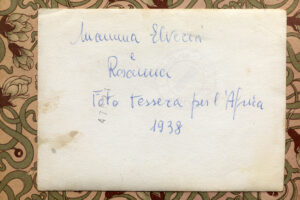 Mamma Elvezia
e
Rosanna
Foto tessera per l'Africa
1938